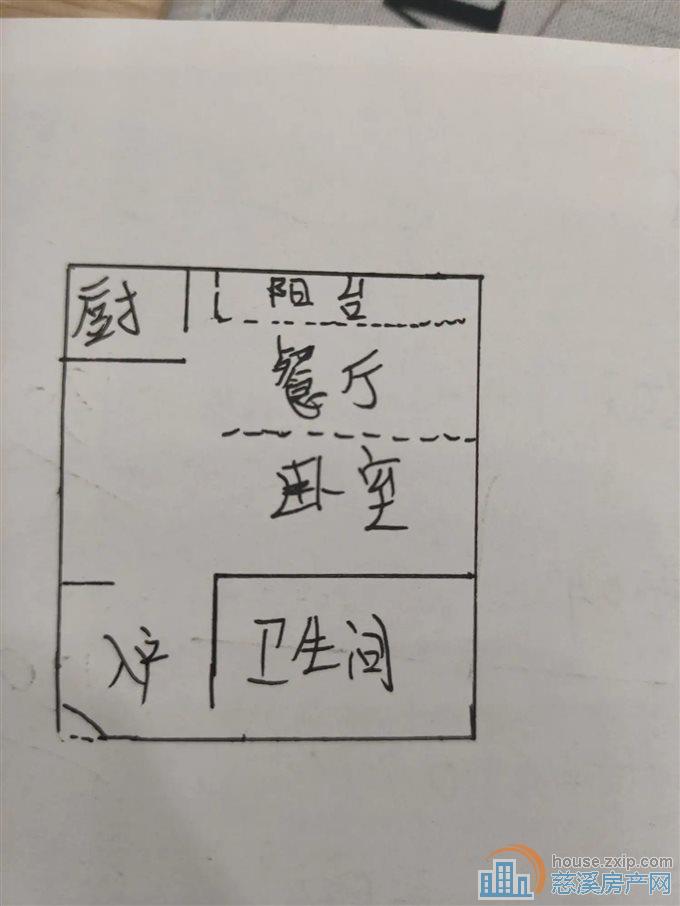 厨
阳台
餐厅
卧室
入户
卫生间
house.zxip.com
慈溪房产网